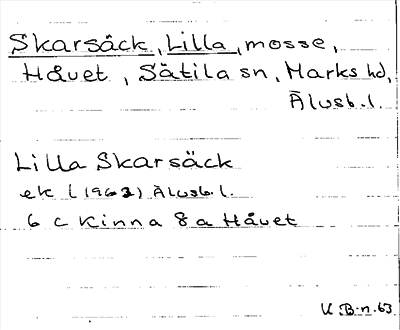 Skarsäck, Lilla, mosse,
Håvet, Sätila sn, Marks hd,
Älvsb. l.
Lilla Skarsäck
ek l (1963) Älvsb. l.
6 c Kinna 8 a Håvet
K.B-n. 63